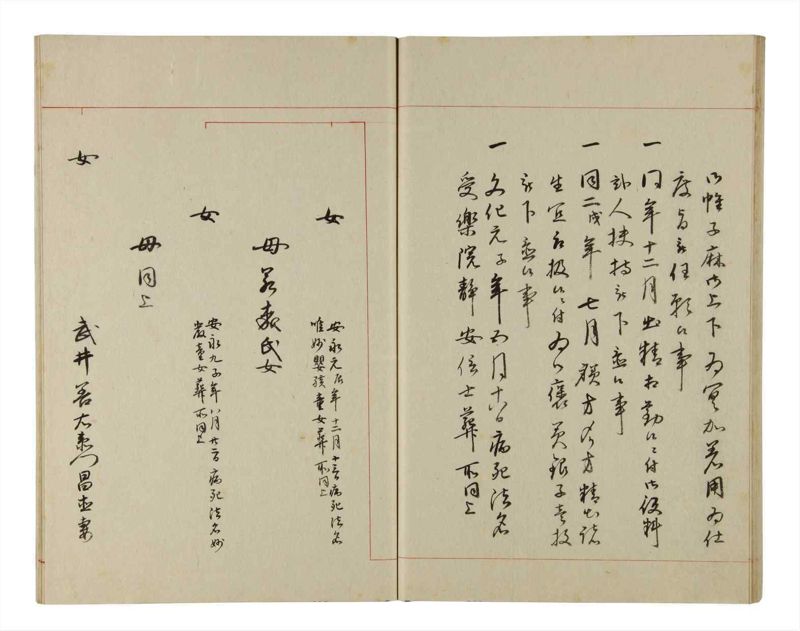 帷子麻上下為冥加着用為仕
度旨願候事
一同年十二月出精相勤候ニ付御役料
弐人扶持被下置候事
一同二戌年七月積方〆方精出諸
生宜取扱候ニ付為御褒美銀子壱枚
被下置候事
一文化元子年五月十六日病死法名
受楽院静安信士葬所同上
女
安永元辰年十二月十三日病死法名
唯妙嬰孩童女葬所同上
母若森氏女
女
安永九子年八月廿二日病死法名妙
巌童女葬所同上
母同上
女
武井善右衛門昌直妻